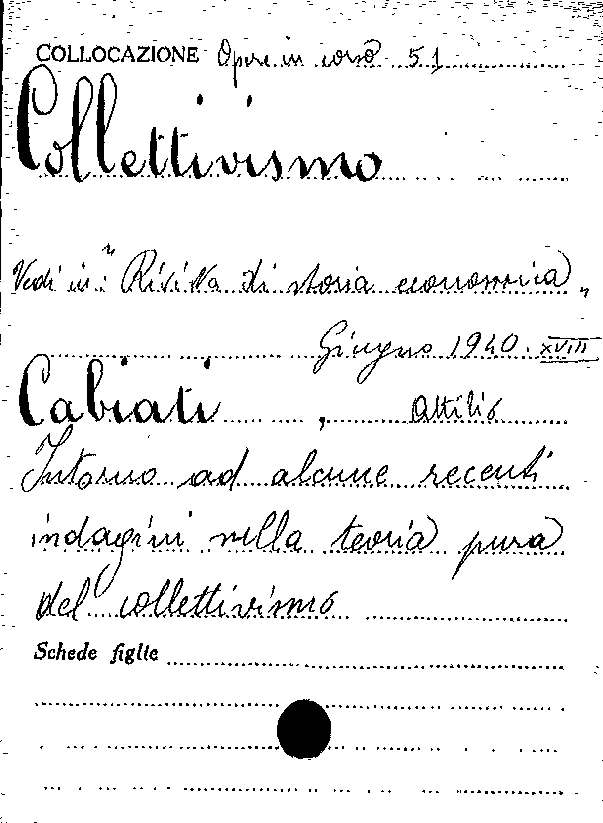 COLLOCAZIONE Opere in corso 51
Collettivismo
Vedi in: "Rivista di storia economica"
Giugno 1940. XVIII
Cabiati, Attilio
Intorno ad alcune recenti
indagini nella teoria pura
del collettivismo
Schede figlie